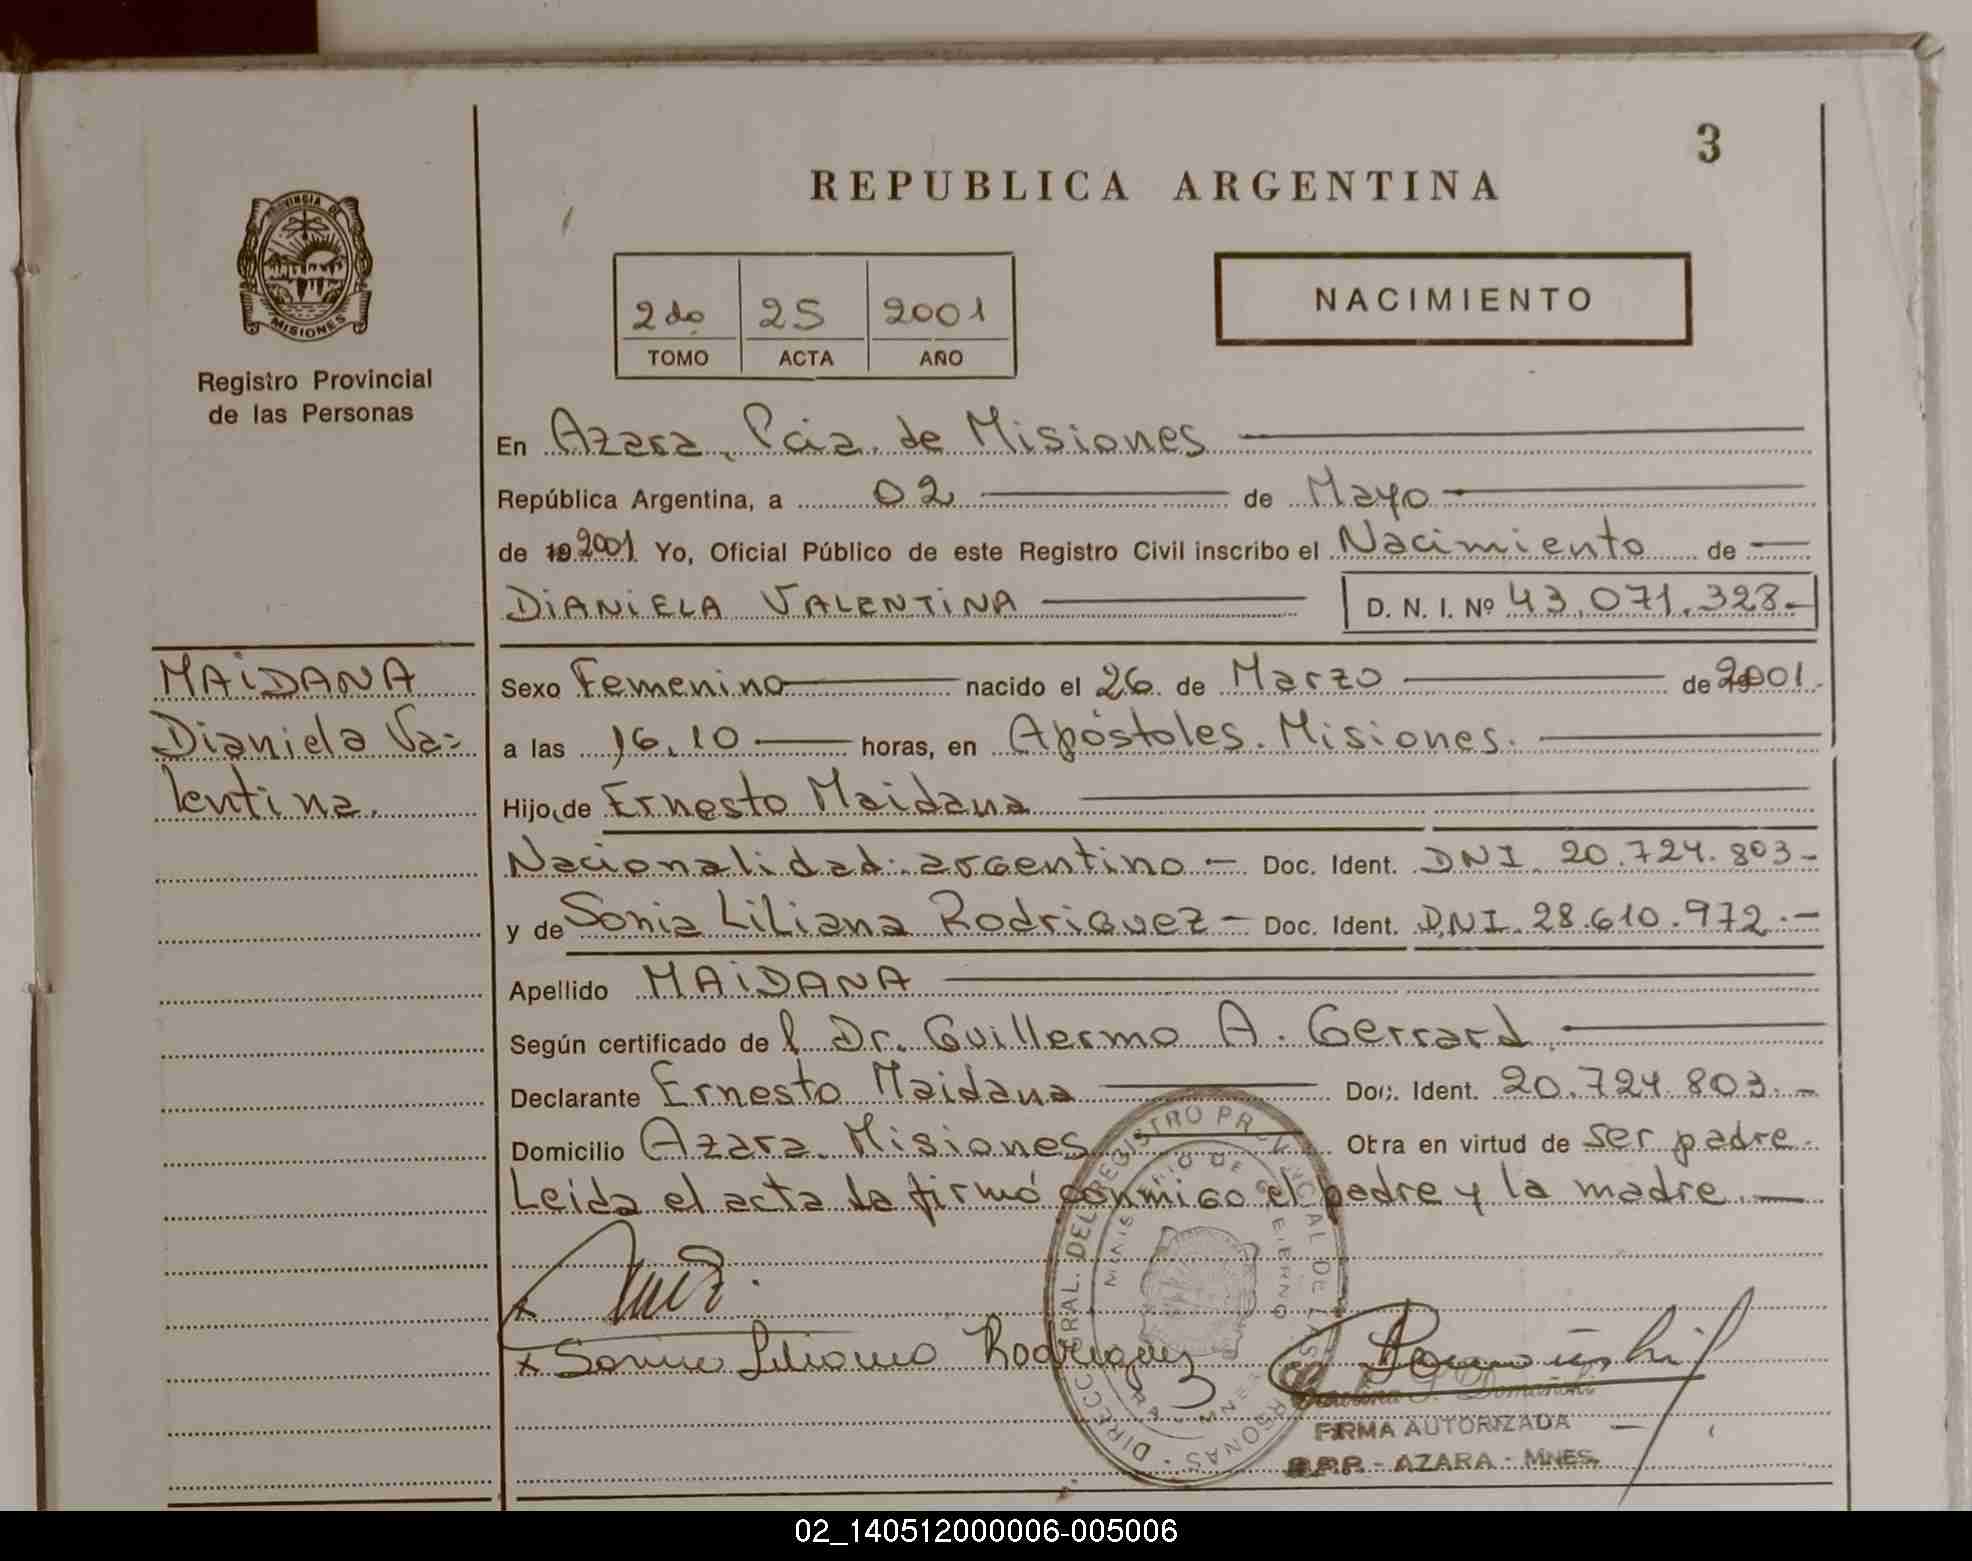 3
REPUBLICA ARGENTINA
PROVINCIA DE
MISIONES
Registro Provincial
de las Personas
2do 25 2001
TOMO ACTA AÑO
NACIMIENTO
En Azara, Pcia. de Misiones
República Argentina, a 02 de Mayo
de 19 2001 Yo, Oficial Público de este Registro Civil inscribo el Nacimiento de
DiANiELA VALENTiNA D. N. I. Nº 43.071.328.-
MAiDANA
Dianiela Va=
lentina.
Sexo Femenino nacido el 26 de Marzo de 2001.
a las 16.10 horas, en Apóstoles. Misiones.
Hijo de Ernesto Maidana
Nacionalidad: argentino - Doc. Ident. DNI. 20.724.803-
y de Sonia Liliana Rodriguez - Doc. Ident. DNI. 28.610.972.-
Apellido MAiDANA
Según certificado de l Dr. Guillermo A. Gerrard.
Declarante Ernesto Maidana Doc. Ident. 20.724.803.-
Domicilio Azara. Misiones Obra en virtud de ser padre.
Leida el acta la firmó conmigo el padre y la madre.
x Sonia Liliana Rodriguez
DIRECC. GRAL. DEL REGISTRO PROVINCIAL DE LAS PERSONAS
MINISTERIO DE GOBIERNO
3
FIRMA AUTORIZADA
R.P.P. - AZARA - MNES.
02_140512000006-005006